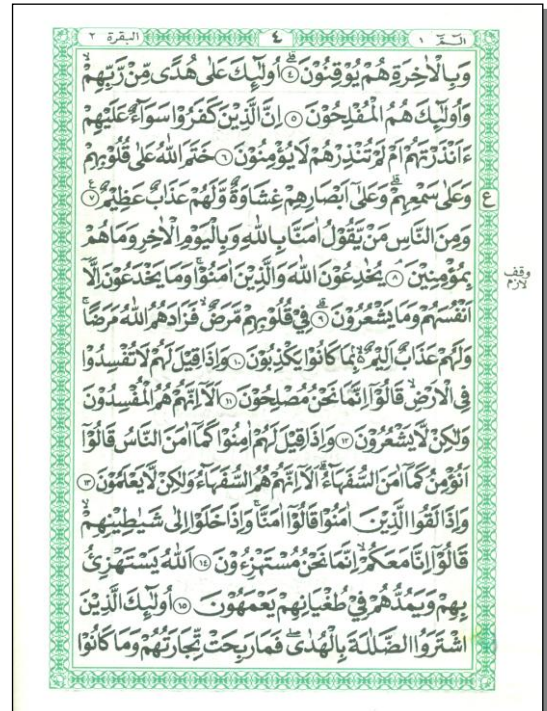 الٓمّٓ ١ ٤ البقرة ٢
وَبِالْاٰخِرَةِ هُمْ يُوْقِنُوْنَ ۝٤ اُولٰٓئِكَ عَلٰى هُدًى مِّنْ رَّبِّهِمْ ۙ
وَاُولٰٓئِكَ هُمُ الْمُفْلِحُوْنَ ۝٥ اِنَّ الَّذِيْنَ كَفَرُوْا سَوَآءٌ عَلَيْهِمْ
ءَاَنْذَرْتَهُمْ اَمْ لَمْ تُنْذِرْهُمْ لَا يُؤْمِنُوْنَ ۝٦ خَتَمَ اللهُ عَلٰى قُلُوْبِهِمْ
وَعَلٰى سَمْعِهِمْ ۗ وَعَلٰٓى اَبْصَارِهِمْ غِشَاوَةٌ وَّلَهُمْ عَذَابٌ عَظِيْمٌ ۝٧
ع
وَمِنَ النَّاسِ مَنْ يَّقُوْلُ اٰمَنَّا بِاللهِ وَبِالْيَوْمِ الْاٰخِرِ وَمَا هُمْ
بِمُؤْمِنِيْنَ ۝٨ يُخٰدِعُوْنَ اللهَ وَالَّذِيْنَ اٰمَنُوْا ۚ وَمَا يَخْدَعُوْنَ اِلَّآ
وقف
لازم
اَنْفُسَهُمْ وَمَا يَشْعُرُوْنَ ۝٩ فِيْ قُلُوْبِهِمْ مَّرَضٌ ۙ فَزَادَهُمُ اللهُ مَرَضًا ۚ
وَلَهُمْ عَذَابٌ اَلِيْمٌ ۢ بِمَا كَانُوْا يَكْذِبُوْنَ ۝١٠ وَاِذَا قِيْلَ لَهُمْ لَا تُفْسِدُوْا
فِى الْاَرْضِ ۙ قَالُوْٓا اِنَّمَا نَحْنُ مُصْلِحُوْنَ ۝١١ اَلَآ اِنَّهُمْ هُمُ الْمُفْسِدُوْنَ
وَلٰكِنْ لَّا يَشْعُرُوْنَ ۝١٢ وَاِذَا قِيْلَ لَهُمْ اٰمِنُوْا كَمَآ اٰمَنَ النَّاسُ قَالُوْٓا
اَنُؤْمِنُ كَمَآ اٰمَنَ السُّفَهَآءُ ۗ اَلَآ اِنَّهُمْ هُمُ السُّفَهَآءُ وَلٰكِنْ لَّا يَعْلَمُوْنَ ۝١٣
وَاِذَا لَقُوا الَّذِيْنَ اٰمَنُوْا قَالُوْٓا اٰمَنَّا ۚ وَاِذَا خَلَوْا اِلٰى شَيٰطِيْنِهِمْ ۙ
قَالُوْٓا اِنَّا مَعَكُمْ ۙ اِنَّمَا نَحْنُ مُسْتَهْزِءُوْنَ ۝١٤ اَللهُ يَسْتَهْزِئُ
بِهِمْ وَيَمُدُّهُمْ فِيْ طُغْيَانِهِمْ يَعْمَهُوْنَ ۝١٥ اُولٰٓئِكَ الَّذِيْنَ
اشْتَرَوُا الضَّلٰلَةَ بِالْهُدٰى ۖ فَمَا رَبِحَتْ تِّجَارَتُهُمْ وَمَا كَانُوْا